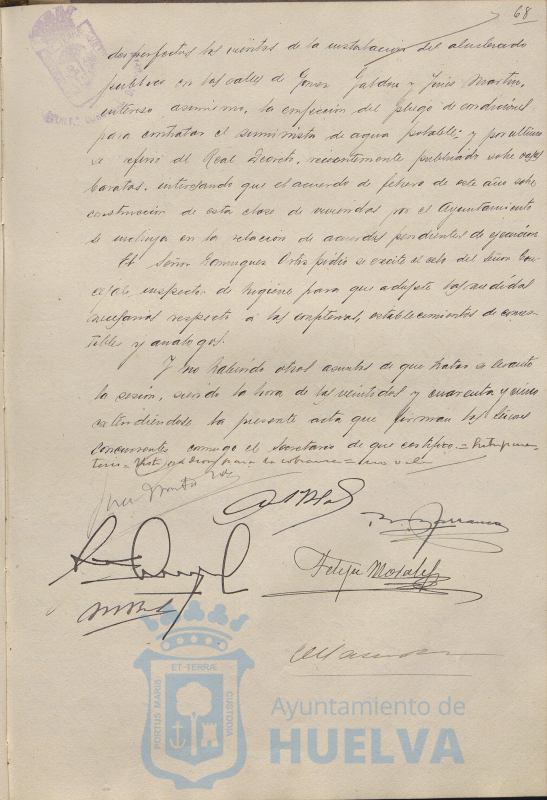 68
desperfectos las cuentas de la instalación del alumbrado
público en las calles de Gomez Jaldon y Ginés Martin,
intereso asimismo, la confección del pliego de condiciones
para contratar el suministro de agua potable; y por ultimo
se refirió al Real Decreto, recientemente publicado sobre casas
baratas, interesando que el acuerdo de febrero de este año sobre
construcción de esta clase de viviendas por el Ayuntamiento
se incluya en la relación de acuerdos pendientes de ejecución
El Señor Dominguez Ortiz pidió se excite el celo del Señor Con-
cejal inspector de higiene para que adopte las medidas
necesarias respecto á las establecimientos de comes-
tibles y analogos.
Y no habiendo otros asuntos de que tratar se levantó
la sesión, siendo la hora de las veintidos y cuarenta y cinco
extendiéndose la presente acta que firman los Sres.
concurrentes conmigo el Secretario de que certifico.=
no vale
Felipe Morales
ET·TERRÆ
PORTUS MARIS
CUSTODIA
Ayuntamiento de
HUELVA